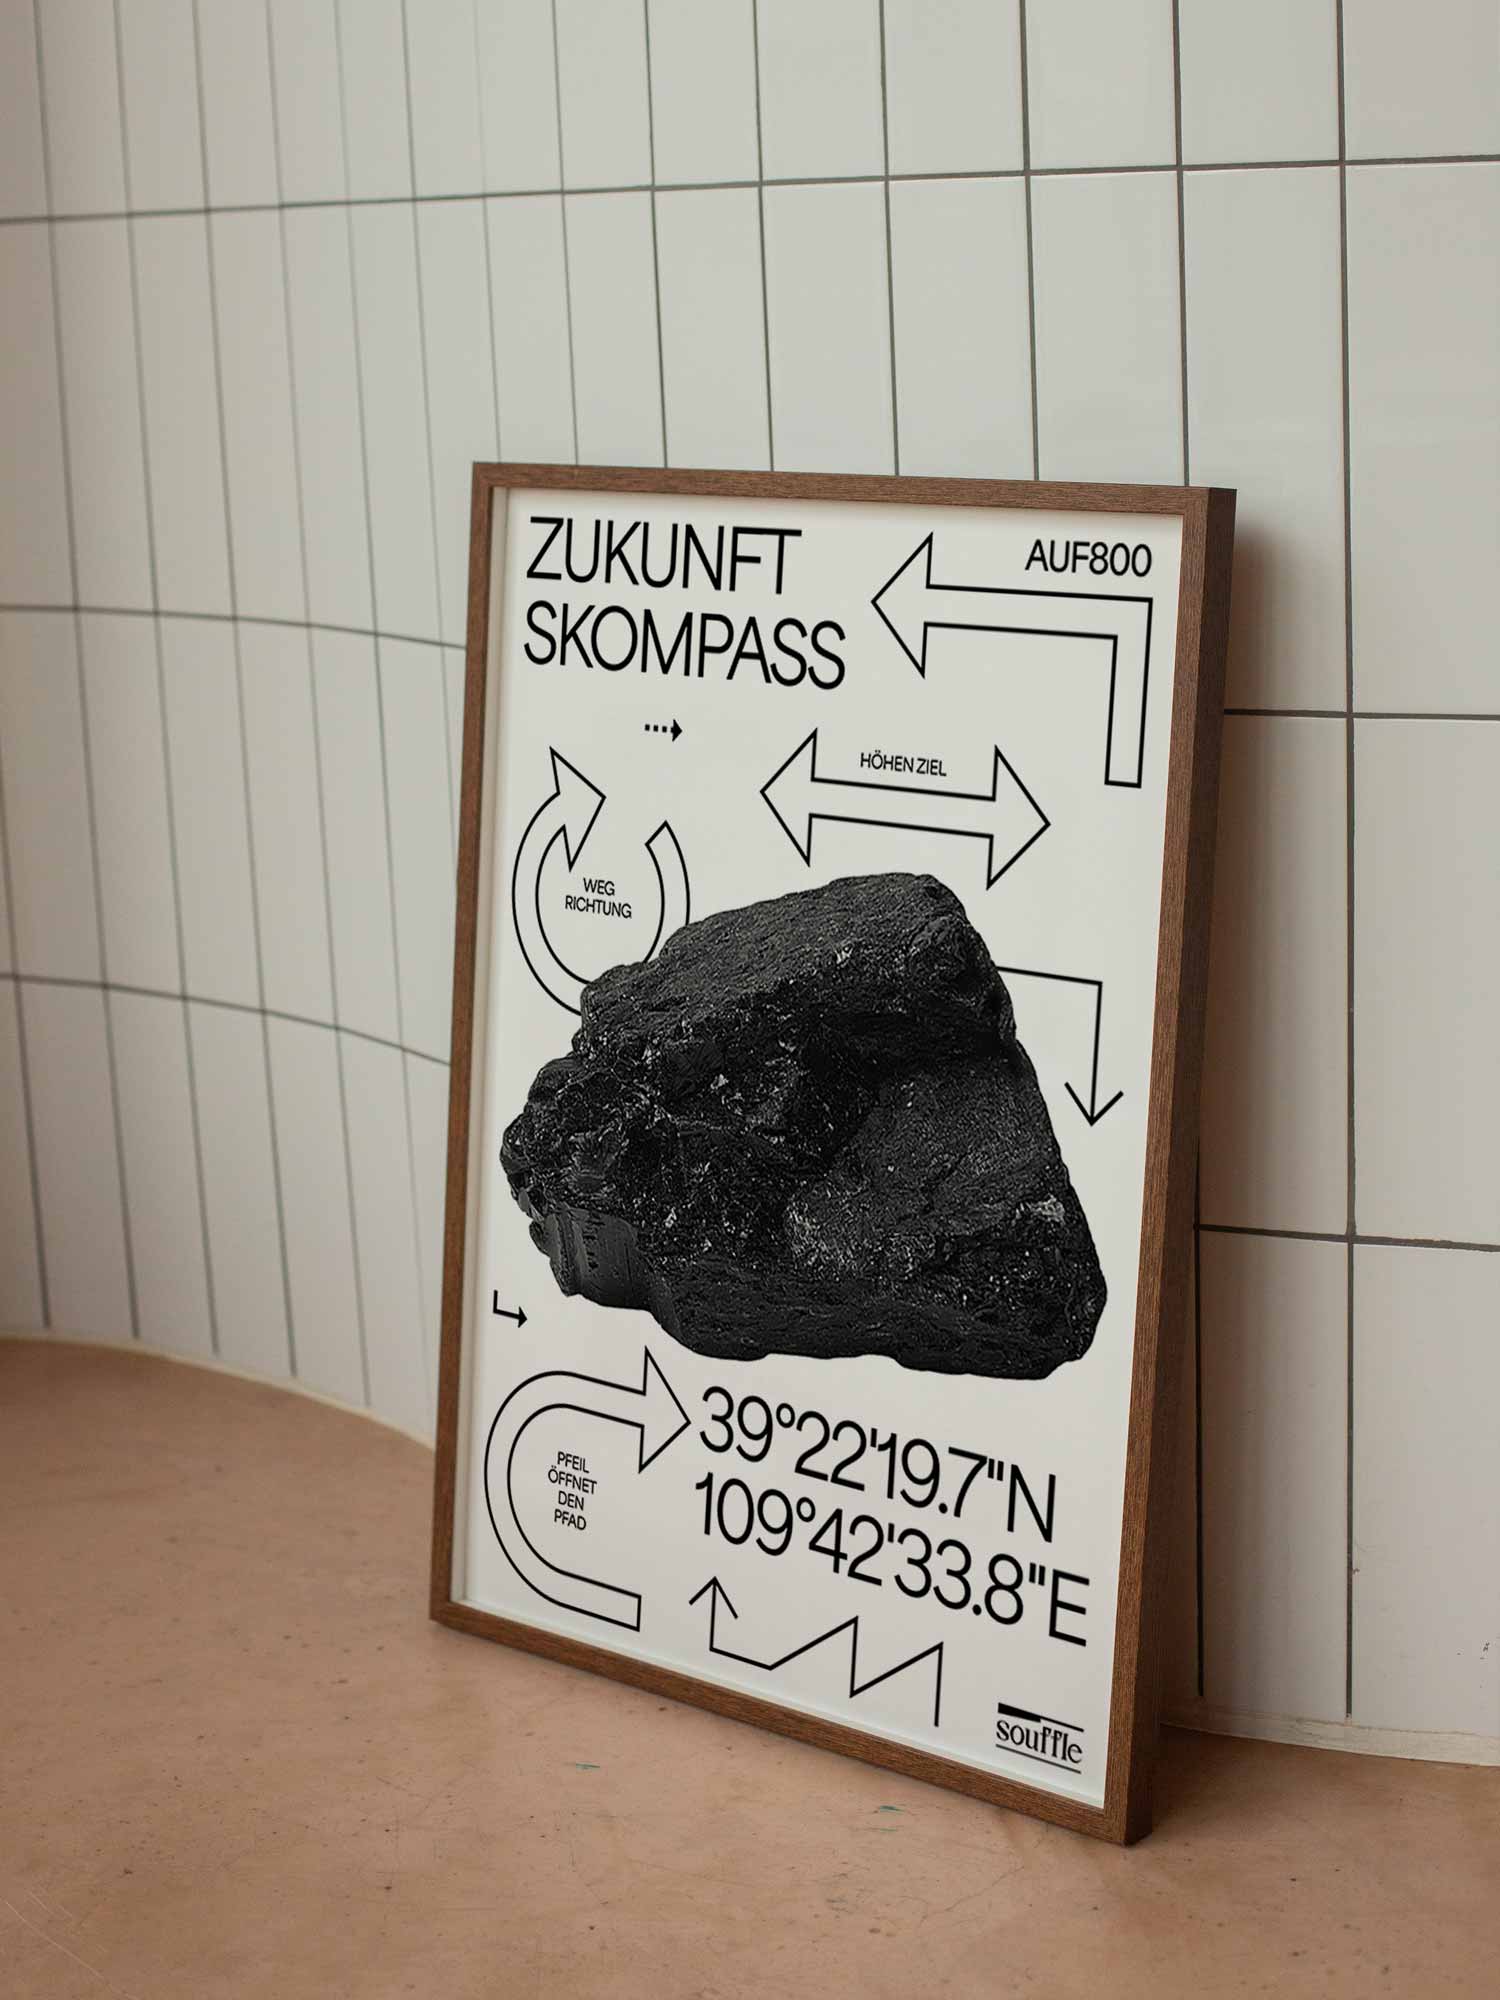 ZUKUNFT
SKOMPASS
AUF800
HÖHEN ZIEL
WEG
RICHTUNG
PFEIL
ÖFFNET
DEN
PFAD
39°22'19.7"N
109°42'33.8"E
souffle